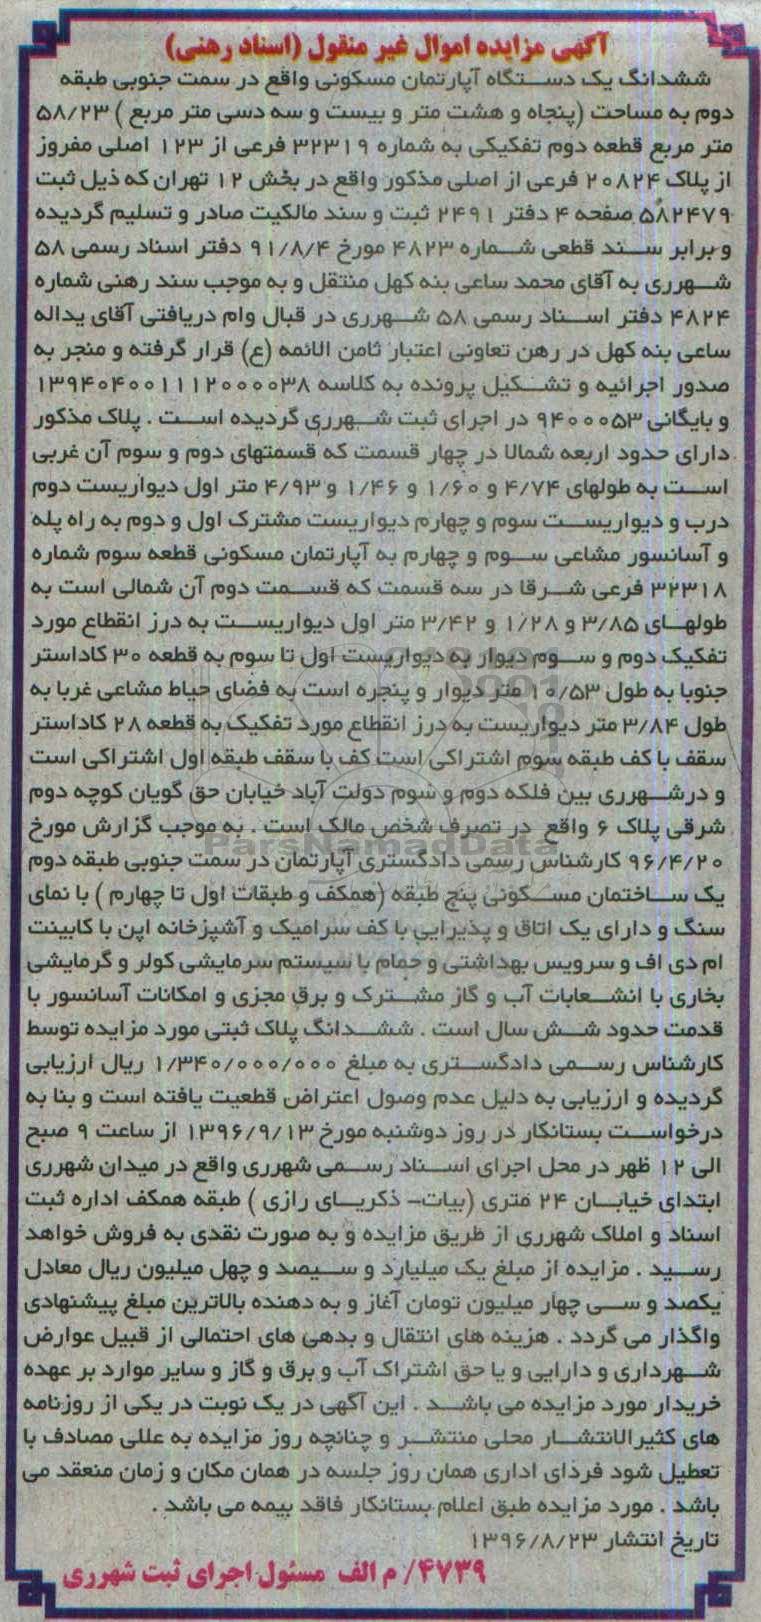 آگهی مزایده اموال غیر منقول (اسناد رهنی)
ششدانگ یک دستگاه آپارتمان مسکونی واقع در سمت جنوبی طبقه
دوم به مساحت (پنجاه و هشت متر و بیست و سه دسی متر مربع) ۵۸/۲۳
متر مربع قطعه دوم تفکیکی به شماره ۳۲۳۱۹ فرعی از ۱۲۳ اصلی مفروز
از پلاک ۲۰۸۲۴ فرعی از اصلی مذکور واقع در بخش ۱۲ تهران که ذیل ثبت
۵۸۲۴۷۹ صفحه ۴ دفتر ۲۴۹۱ ثبت و سند مالکیت صادر و تسلیم گردیده
و برابر سند قطعی شماره ۴۸۲۳ مورخ ۹۱/۸/۴ دفتر اسناد رسمی ۵۸
شهرری به آقای محمد ساعی بنه کهل منتقل و به موجب سند رهنی شماره
۴۸۲۴ دفتر اسناد رسمی ۵۸ شهرری در قبال وام دریافتی آقای یداله
ساعی بنه کهل در رهن تعاونی اعتبار ثامن الائمه (ع) قرار گرفته و منجر به
صدور اجرائیه و تشکیل پرونده به کلاسه ۱۳۹۴۰۴۰۰۱۱۱۲۰۰۰۰۳۸
و بایگانی ۹۴۰۰۰۵۳ در اجرای ثبت شهرری گردیده است . پلاک مذکور
دارای حدود اربعه شمالا در چهار قسمت که قسمتهای دوم و سوم آن غربی
است به طولهای ۴/۷۴ و ۱/۶۰ و ۱/۴۶ و ۴/۹۳ متر اول دیواریست دوم
درب و دیواریست سوم و چهارم دیواریست مشترک اول و دوم به راه پله
و آسانسور مشاعی سوم و چهارم به آپارتمان مسکونی قطعه سوم شماره
۳۲۳۱۸ فرعی شرقا در سه قسمت که قسمت دوم آن شمالی است به
طولهای ۳/۸۵ و ۱/۲۸ و ۳/۴۲ متر اول دیواریست به درز انقطاع مورد
تفکیک دوم و سوم دیوار به دیواریست اول تا سوم به قطعه ۳۰ کاداستر
جنوبا به طول ۱۰/۵۳ متر دیوار و پنجره است به فضای حیاط مشاعی غربا به
طول ۳/۸۴ متر دیواریست به درز انقطاع مورد تفکیک به قطعه ۲۸ کاداستر
سقف با کف طبقه سوم اشتراکی است کف با سقف طبقه اول اشتراکی است
و درشهرری بین فلکه دوم و سوم دولت آباد خیابان حق گویان کوچه دوم
شرقی پلاک ۶ واقع در تصرف شخص مالک است . به موجب گزارش مورخ
ParsNamadData
۹۶/۴/۲۰ کارشناس رسمی دادگستری آپارتمان در سمت جنوبی طبقه دوم
یک ساختمان مسکونی پنج طبقه (همکف و طبقات اول تا چهارم) با نمای
سنگ و دارای یک اتاق و پذیرایی با کف سرامیک و آشپزخانه اپن با کابینت
ام دی اف و سرویس بهداشتی و حمام با سیستم سرمایشی کولر و گرمایشی
بخاری با انشعابات آب و گاز مشترک و برق مجزی و امکانات آسانسور با
قدمت حدود شش سال است . ششدانگ پلاک ثبتی مورد مزایده توسط
کارشناس رسمی دادگستری به مبلغ ۱/۳۴۰/۰۰۰/۰۰۰ ریال ارزیابی
گردیده و ارزیابی به دلیل عدم وصول اعتراض قطعیت یافته است و بنا به
درخواست بستانکار در روز دوشنبه مورخ ۱۳۹۶/۹/۱۳ از ساعت ۹ صبح
الی ۱۲ ظهر در محل اجرای اسناد رسمی شهرری واقع در میدان شهرری
ابتدای خیابان ۲۴ متری (بیات- ذکریای رازی) طبقه همکف اداره ثبت
اسناد و املاک شهرری از طریق مزایده و به صورت نقدی به فروش خواهد
رسید . مزایده از مبلغ یک میلیارد و سیصد و چهل میلیون ریال معادل
یکصد و سی چهار میلیون تومان آغاز و به دهنده بالاترین مبلغ پیشنهادی
واگذار می گردد . هزینه های انتقال و بدهی های احتمالی از قبیل عوارض
شهرداری و دارایی و یا حق اشتراک آب و برق و گاز و سایر موارد بر عهده
خریدار مورد مزایده می باشد . این آگهی در یک نوبت در یکی از روزنامه
های کثیرالانتشار محلی منتشر و چنانچه روز مزایده به عللی مصادف با
تعطیل شود فردای اداری همان روز جلسه در همان مکان و زمان منعقد می
باشد . مورد مزایده طبق اعلام بستانکار فاقد بیمه می باشد .
تاریخ انتشار ۱۳۹۶/۸/۲۳
۴۷۳۹/ م الف مسئول اجرای ثبت شهرری